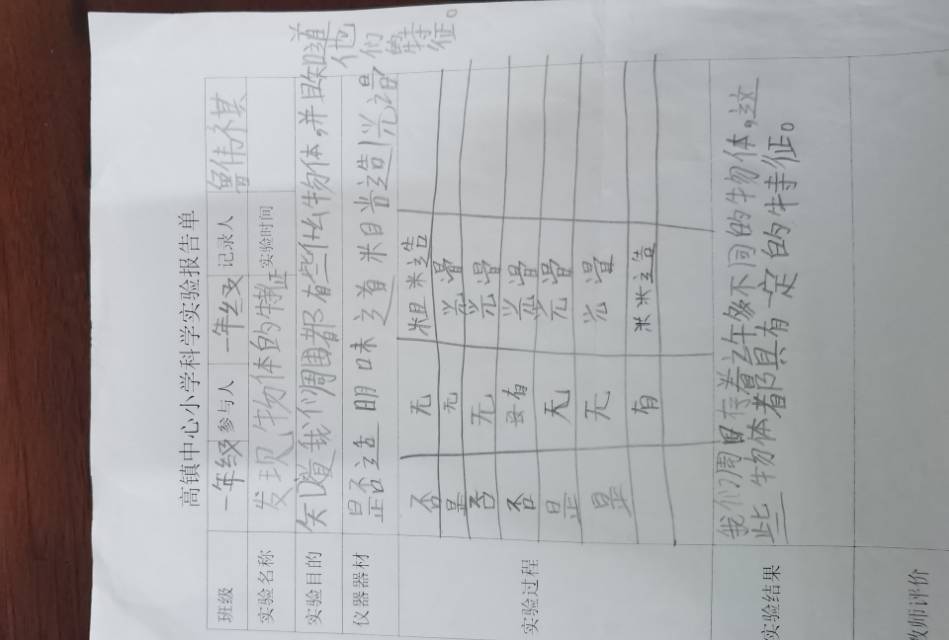 高镇中心小学科学实验报告单
班级 一年级 参与人 一年级 记录人 鲁伟不其
实验名称 发现物体的特征 实验时间
实验目的 知道我们周围都有些什么物体,并且知道他们的特征。
仪器器材 是否透明 味道 粗造 光滑
实验过程
否 无 粗造
是 无 光滑
否 无 光滑
否 有 光滑
是 无 光滑
是 无 光滑
有 粗造
实验结果 我们周围存着许多不同的物体,这
些物体都具有一定的特征。
教师评价